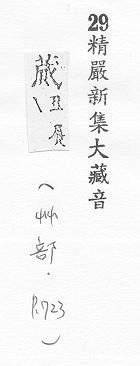 29精嚴新集大藏音
(艸部.
P.723)